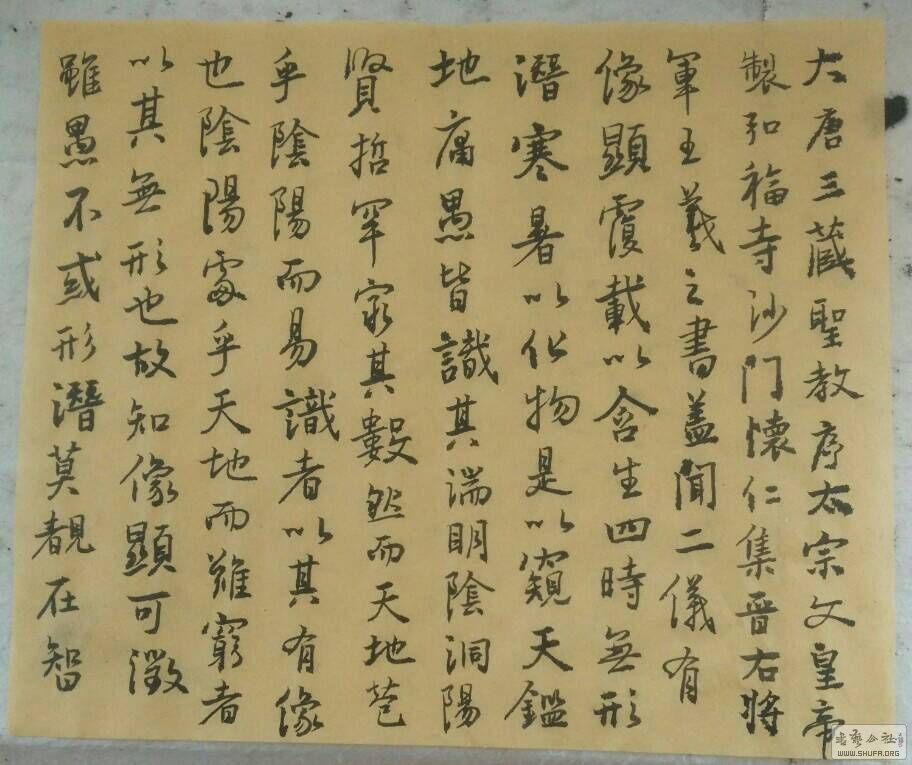 大唐三藏聖教序太宗文皇帝
製弘福寺沙門懷仁集晉右將
軍王羲之書蓋聞二儀有
像顯覆載以含生四時無形
潛寒暑以化物是以窺天鑑
地庸愚皆識其端明陰洞陽
賢哲罕窮其數然而天地苞
乎陰陽而易識者以其有像
也陰陽處乎天地而難窮者
以其無形也故知像顯可徵
雖愚不惑形潛莫覩在智
書藝公社
WWW.SHUFA.ORG